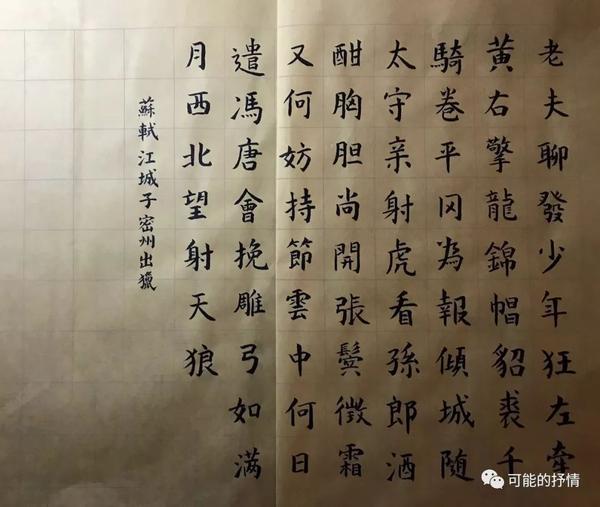 老夫聊發少年狂左牽
黄右擎龍錦帽貂裘千
騎卷平冈為報傾城随
太守亲射虎看孫郎酒
酣胸胆尚開張鬓微霜
又何妨持節雲中何日
遣馮唐會挽雕弓如满
月西北望射天狼
蘇軾江城子密州出獵
可能的抒情